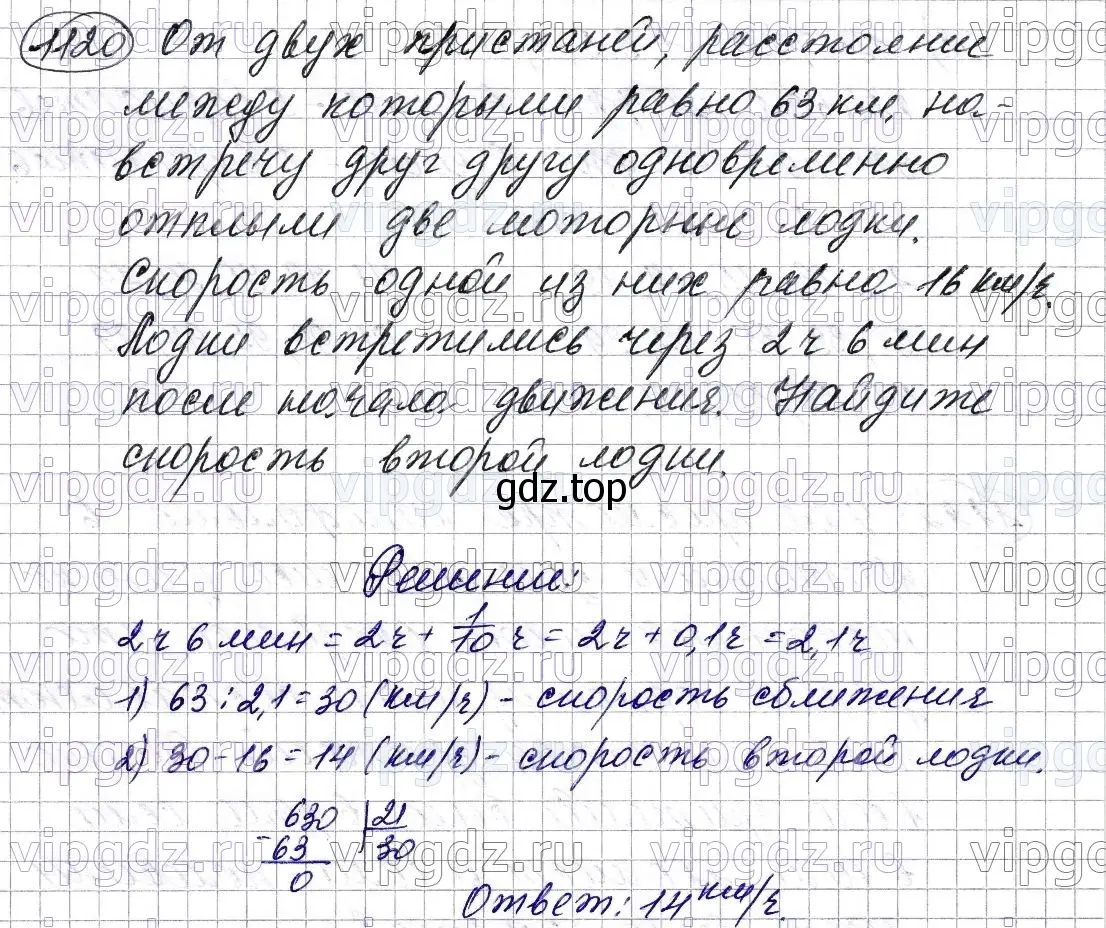 1120 От двух пристаней, расстояние
между которыми равно 63 км, на-
встречу друг другу одновременно
отплыли две моторные лодки.
Скорость одной из них равна 16 км/ч.
Лодки встретились через 2 ч 6 мин
после начала движения. Найдите
скорость второй лодки.
gdz.top
Решение:
2 ч 6 мин = 2 ч + 1/10 ч = 2 ч + 0,1 ч = 2,1 ч
1) 63 : 2,1 = 30 (км/ч) - скорость сближения
2) 30 - 16 = 14 (км/ч) - скорость второй лодки.
630 | 21
- 63 | 30
0
Ответ: 14 км/ч.
vipgdz.ru